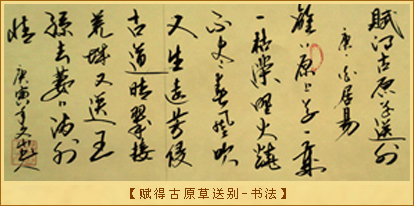 賦得古原草送別
唐 白居易
離々原上草一歲
一枯榮野火燒
不盡春風吹
又生遠芳侵
古道晴翠接
荒城又送王
孫去萋々滿別
情
庚寅年
【赋得古原草送别-书法】